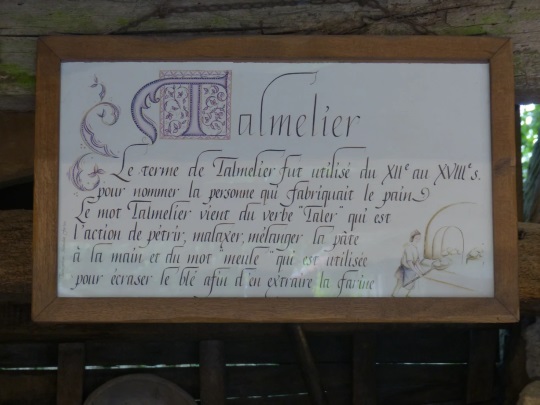 Talmelier
Le terme de Talmelier fut utilisé du XIIe au XVIIIe s.
pour nommer la personne qui fabriquait le pain
Le mot Talmelier vient du verbe "Taler" qui est
l'action de pétrir, malaxer, mélanger la pâte
à la main et du mot "meule" qui est utilisée
pour écraser le blé afin d'en extraire la farine